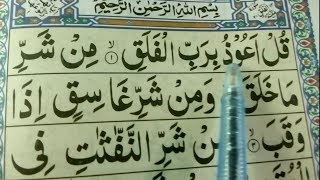 بِسْمِ اللّٰهِ الرَّحْمٰنِ الرَّحِيْمِ
قُلْ اَعُوْذُ بِرَبِّ الْفَلَقِ ۝۱ مِنْ شَرِّ
مَا خَلَقَ وَمِنْ شَرِّ غَاسِقٍ اِذَا
وَقَبَ ۝۳ مِنْ شَرِّ النَّفّٰثٰتِ فِی